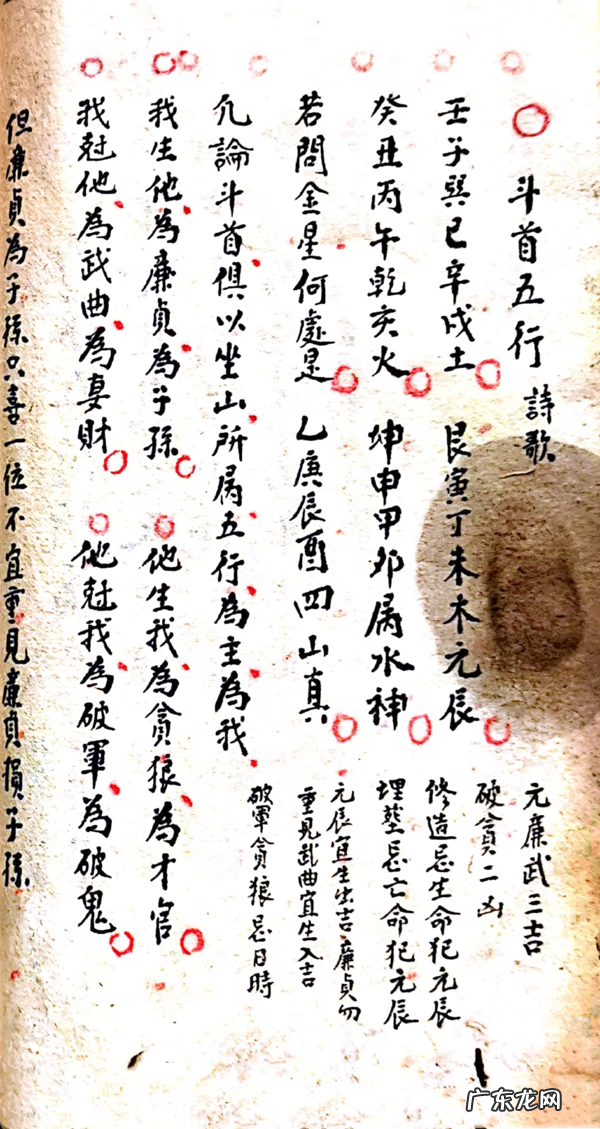 斗首五行 詩歌
壬子巽巳辛戌土 艮寅丁未木元辰
癸丑丙午乾亥火 坤申甲卯屬水神
若問金星何處是 乙庚辰酉四山真
凡論斗首俱以坐山所屬五行為主為我
我生他為廉貞為子孫 他生我為貪狼為才官
我尅他為武曲為妻財 他尅我為破軍為破鬼
但廉貞為子孫只喜一位不宜重見廉貞損子孫
元廉武三吉
破貪二凶
修造忌生命犯元辰
埋塟忌亡命犯元辰
元辰宜生出吉廉貞勿
重見武曲宜生入吉
破軍貪狼忌日時
广东龙网